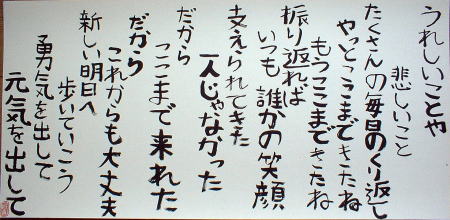 うれしいことや
悲しいこと
たくさんの毎日のくり返し
やっとここまできたね
もうここまできたね
振り返れば
いつも誰かの笑顔
支えられてきた
一人じゃなかった
だから
ここまで来れた
だから
これからも大丈夫
新しい明日へ
歩いていこう
勇気を出して
元気を出して